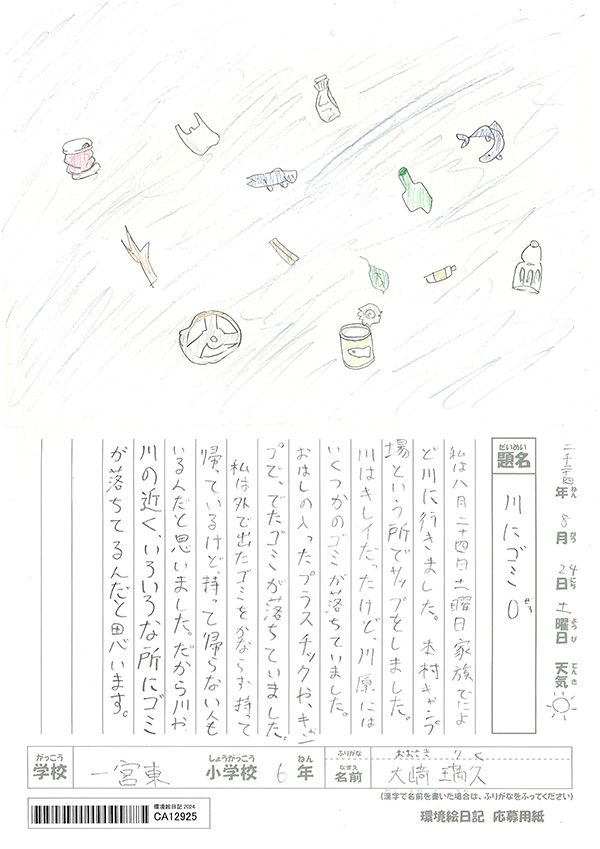 二千二十四年 8月 24日 土曜日 天気
ねん がつ にち ようび てんき
だいめい
題名
川にゴミ0
ぜろ
私は八月二十四日土曜日家族でによ
ど川に行きました。本村キャンプ
場という所でサップをしました。
川はキレイだったけど、川原には
いくつかのゴミが落ちていました。
おはしの入ったプラスチックや、キャン
プで、でたゴミが落ちていました。
私は外で出たゴミをかならず持って
帰っているけど、持って帰らない人も
いるんだと思いました。だから川や
川の近く、いろいろな所にゴミ
が落ちてるんだと思います。
がっこう
学校
一宮東
しょうがっこう
小学校
6
ねん
年
ふりがな
おおさき りく
なまえ
名前
大﨑 璃久
(漢字で名前を書いた場合は、ふりがなをふってください)
環境絵日記 2024
CA12925
環境絵日記 応募用紙